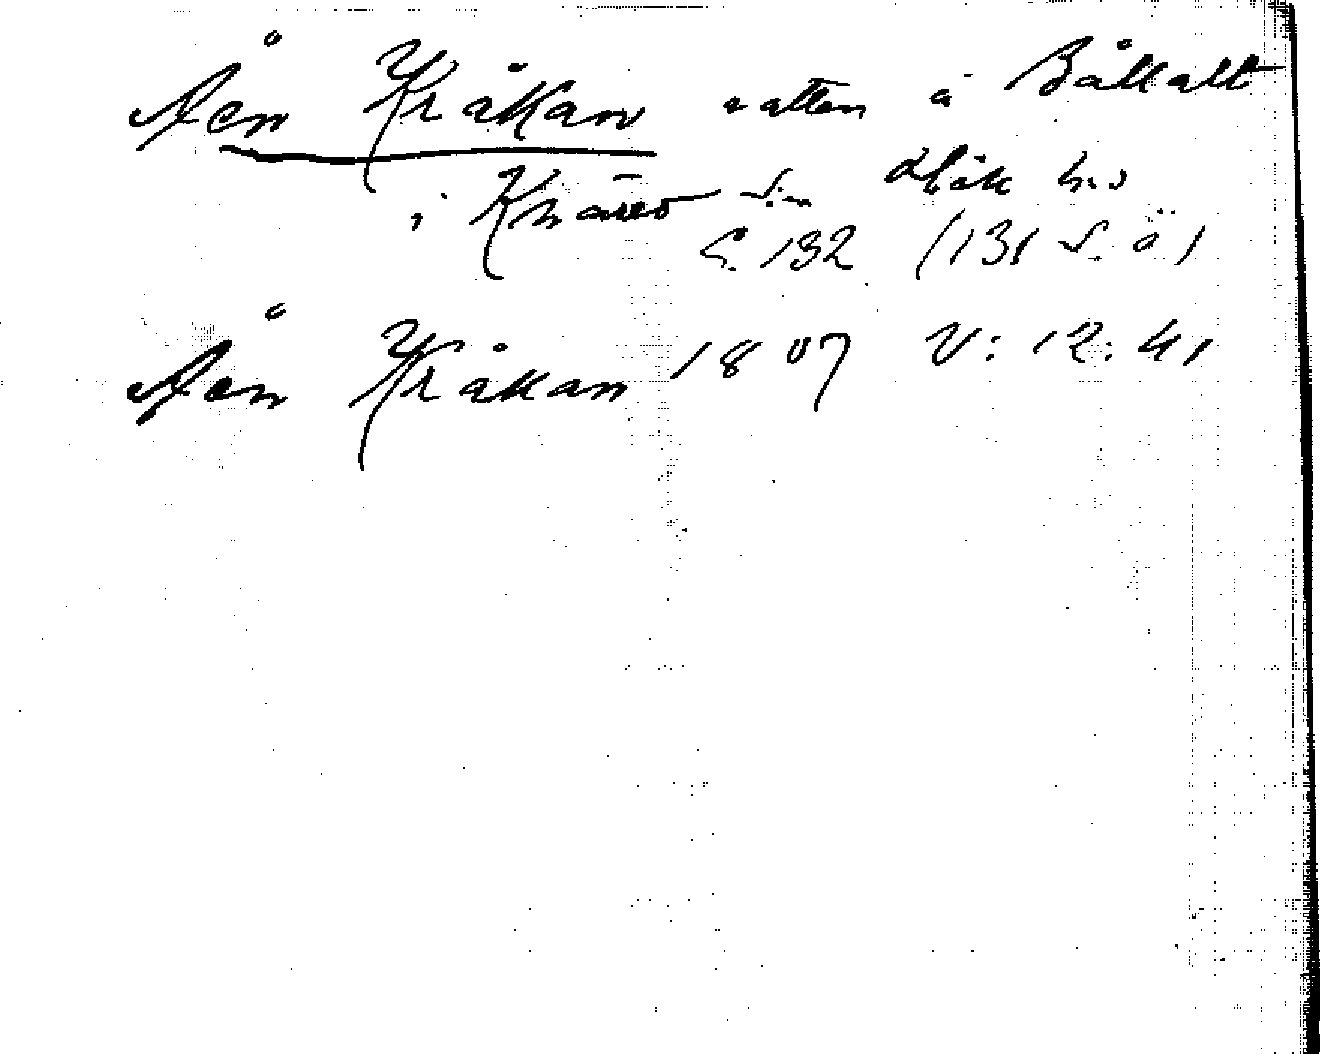 Åen Kråkan vatten å Bållalt
i Knäred s:n Höks h:d
S. 132 (131 s. ö)
Åen Kråkan 1807 V: 12: 41